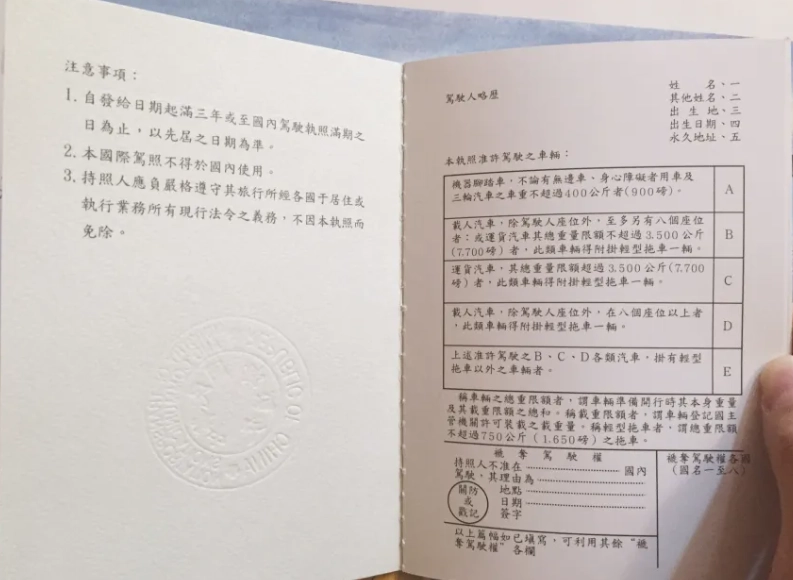 注意事項：
1. 自發給日期起滿三年或至國內駕駛執照滿期之
日為止，以先屆之日期為準。
2. 本國際駕照不得於國內使用。
3. 持照人應負嚴格遵守其旅行所經各國于居住或
執行業務所有現行法令之義務，不因本執照而
免除。
駕駛人略歷
姓　　名、一
其他姓名、二
出 生 地、三
出生日期、四
永久地址、五
本執照准許駕駛之車輛：
機器腳踏車，不論有無邊車、身心障礙者用車及
三輪汽車之車重不超過400公斤者(900磅)。
A
載人汽車，除駕駛人座位外，至多另有八個座位
者：或運貨汽車其總重量限額不超過 3.500 公斤
(7.700磅) 者，此類車輛得附掛輕型拖車一輛。
B
運貨汽車，其總重量限額超過 3.500 公斤(7.700
磅) 者，此類車輛得附掛輕型拖車一輛。
C
載人汽車，除駕駛人座位外，在八個座位以上者
，此類車輛得附掛輕型拖車一輛。
D
上述准許駕駛之B、C、D各類汽車，掛有輕型
拖車以外之車輛者。
E
稱車輛之總重限額者，謂車輛準備開行時其本身重量
及其載重限額之總和。稱載重限額者，謂車輛登記國主
管機關許可裝載之載重量。稱輕型拖車者，謂總重限額
不超過750公斤 (1.650磅) 之拖車。
褫 奪 駕 駛 權
持照人不准在 國內
駕駛，其理由為
關防
或
戳記
地點
日期
簽字
褫奪駕駛權各國
(國名一至八)
以上篇幅如已填寫，可利用其餘“褫
奪駕駛權”各欄